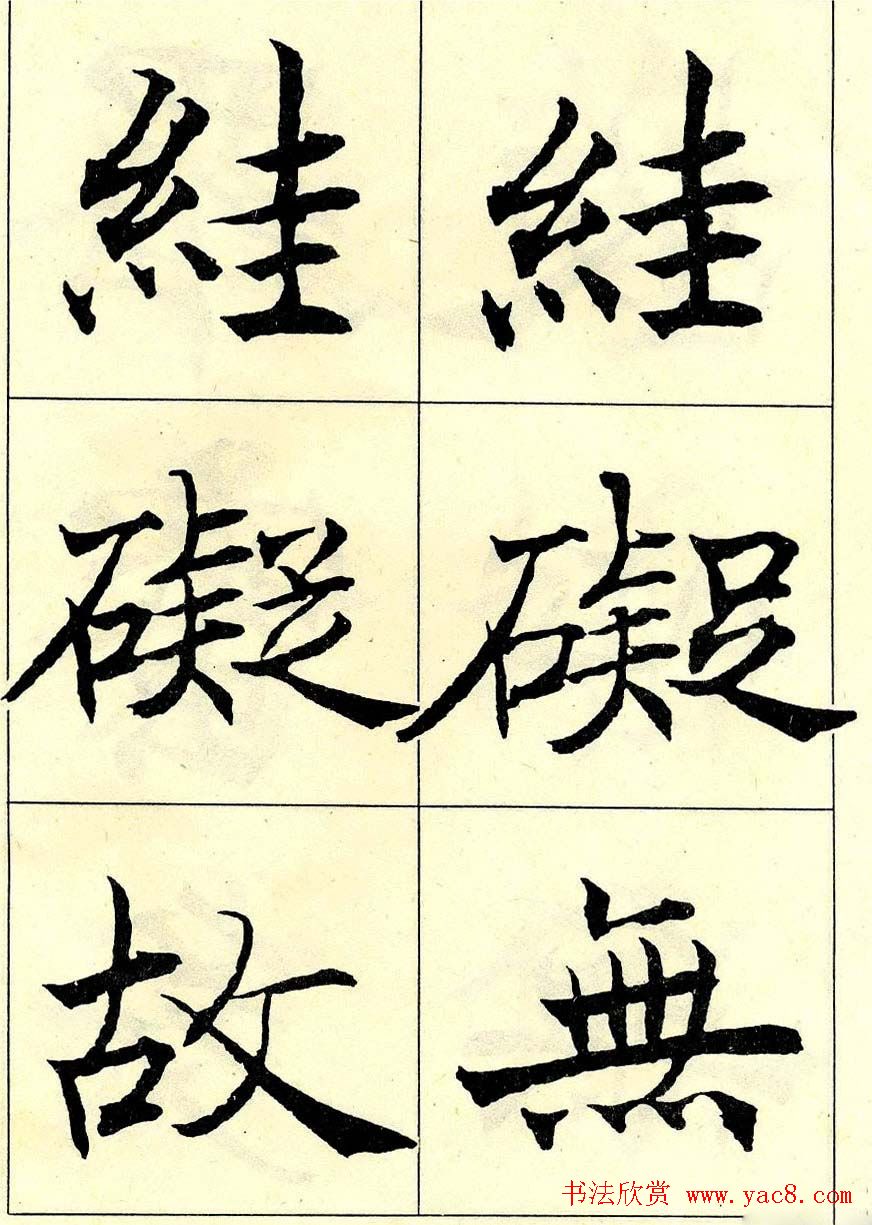 絓礙無
絓礙故
书法欣赏 www.yac8.com